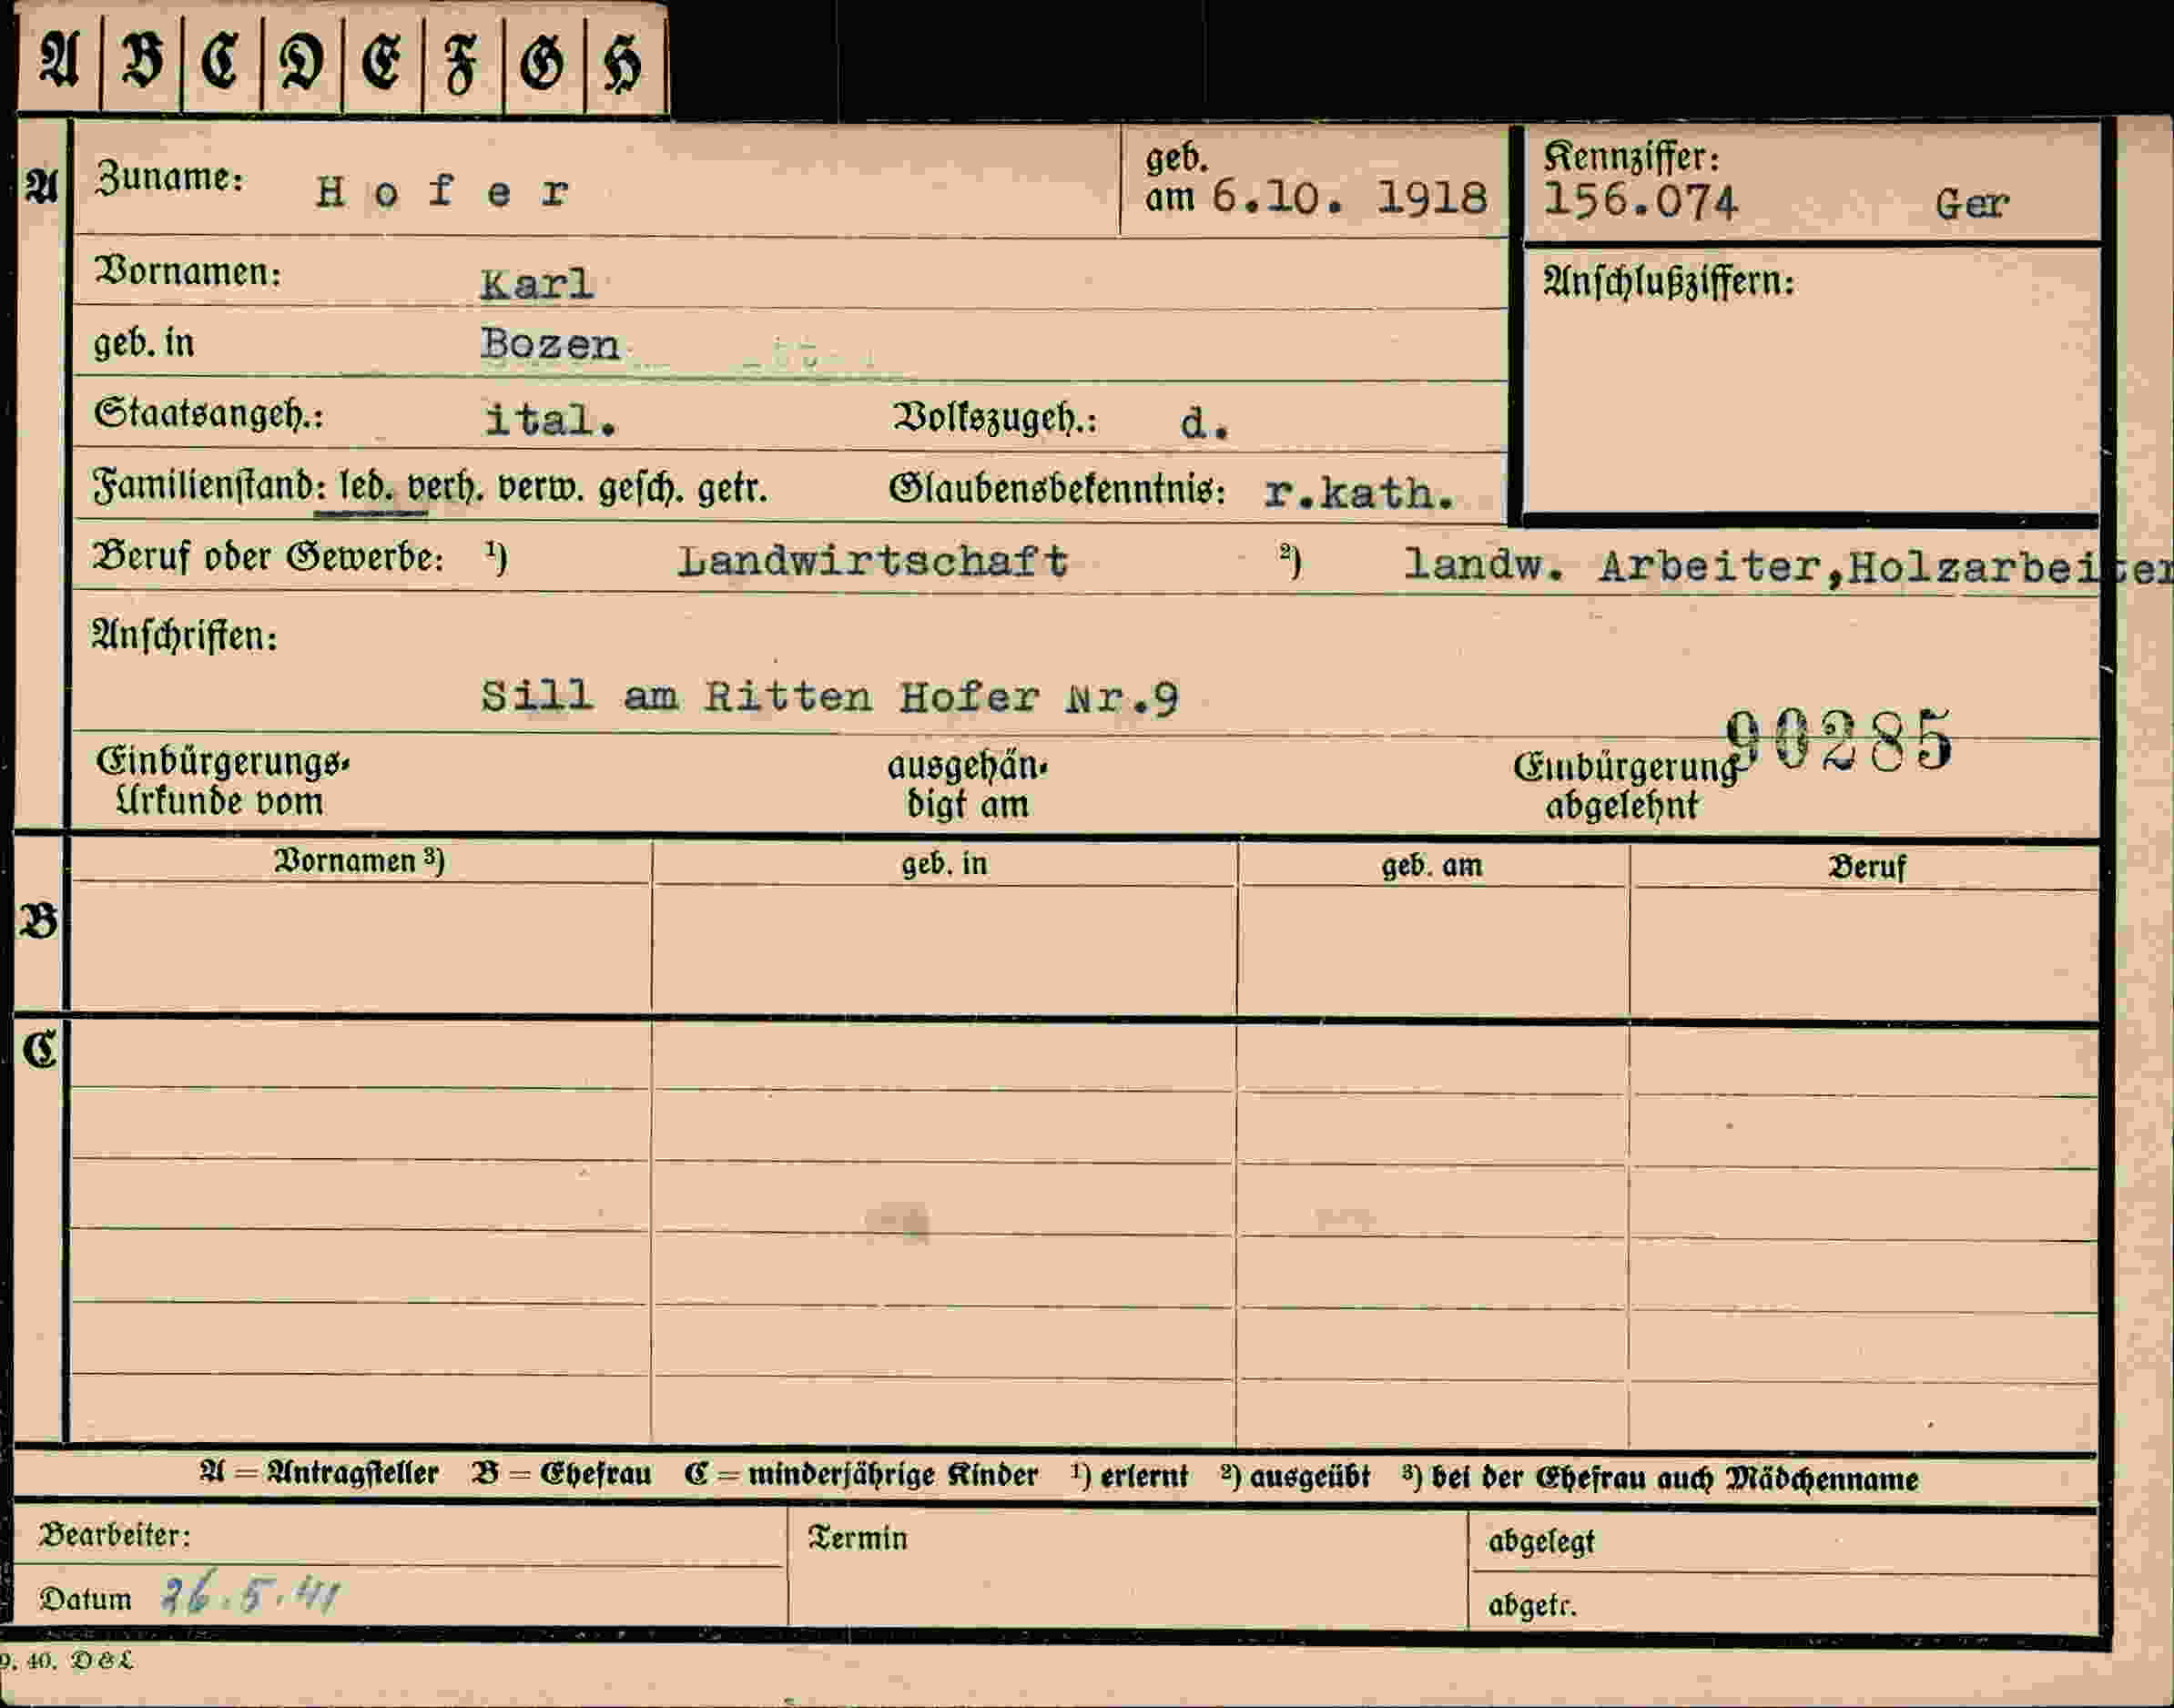 A B C D E F G H
A Zuname: Hofer geb. am 6.10. 1918 Kennziffer: 156.074 Ger
Vornamen: Karl Anschlußziffern:
geb. in Bozen
Staatsangeh.: ital. Volkszugeh.: d.
Familienstand: led. verh. verw. gesch. getr. Glaubensbekenntnis: r.kath.
Beruf oder Gewerbe: ¹) Landwirtschaft ²) landw. Arbeiter,Holzarbeiter
Anschriften:
Sill am Ritten Hofer Nr.9
90285
Einbürgerungs- ausgehän- Einbürgerung
Urkunde vom digt am abgelehnt
Vornamen ³) geb. in geb. am Beruf
B
C
A = Antragsteller B = Ehefrau C = minderjährige Kinder ¹) erlernt ²) ausgeübt ³) bei der Ehefrau auch Mädchenname
Bearbeiter: Termin abgelegt
Datum 26.5.41 abgetr.
9. 40. D&L